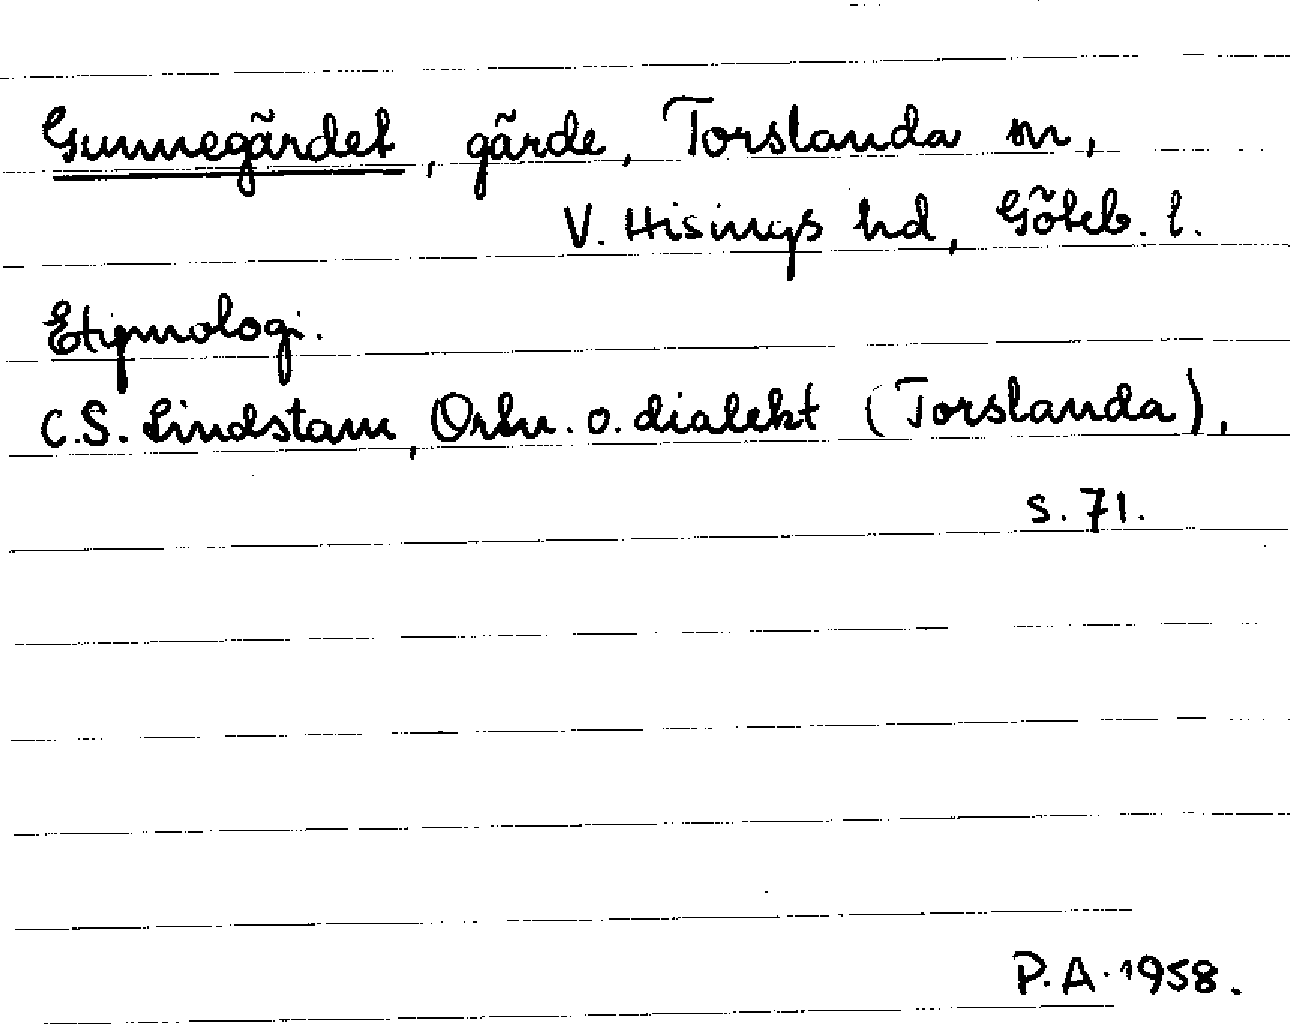 Gunnegärdet, gärde, Torslanda sn,
V. Hisings hd, Göteb. l.
Etymologi.
C.S. Lindstam, Ortn. o. dialekt (Torslanda),
s. 71.
P.A. 1958.